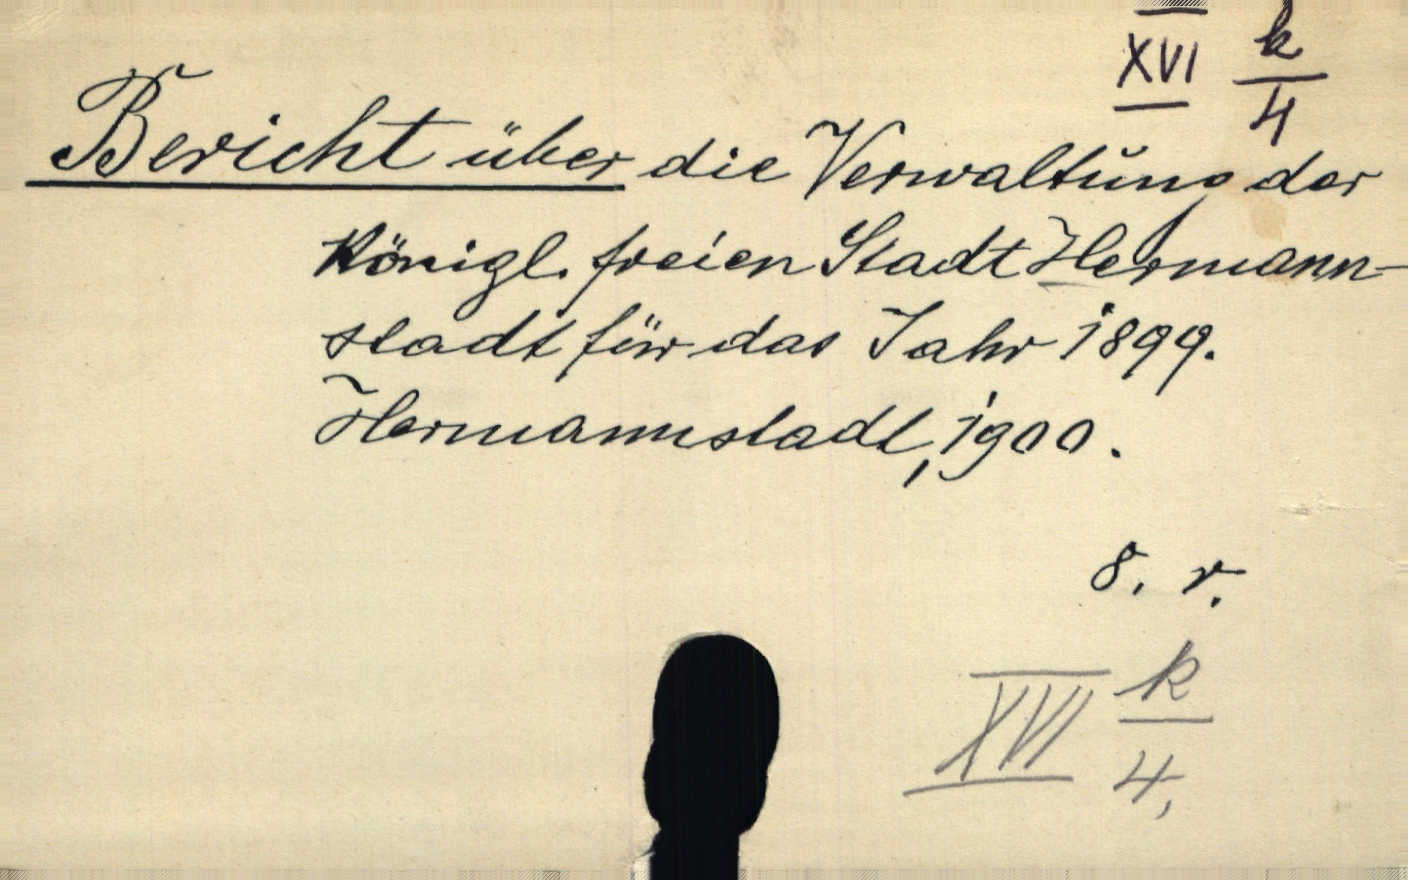 XVI k/4
Bericht über die Verwaltung der
Königl. freien Stadt Hermann-
stadt für das Jahr 1899.
Hermannstadt, 1900.
8. r.
XVI k/4,